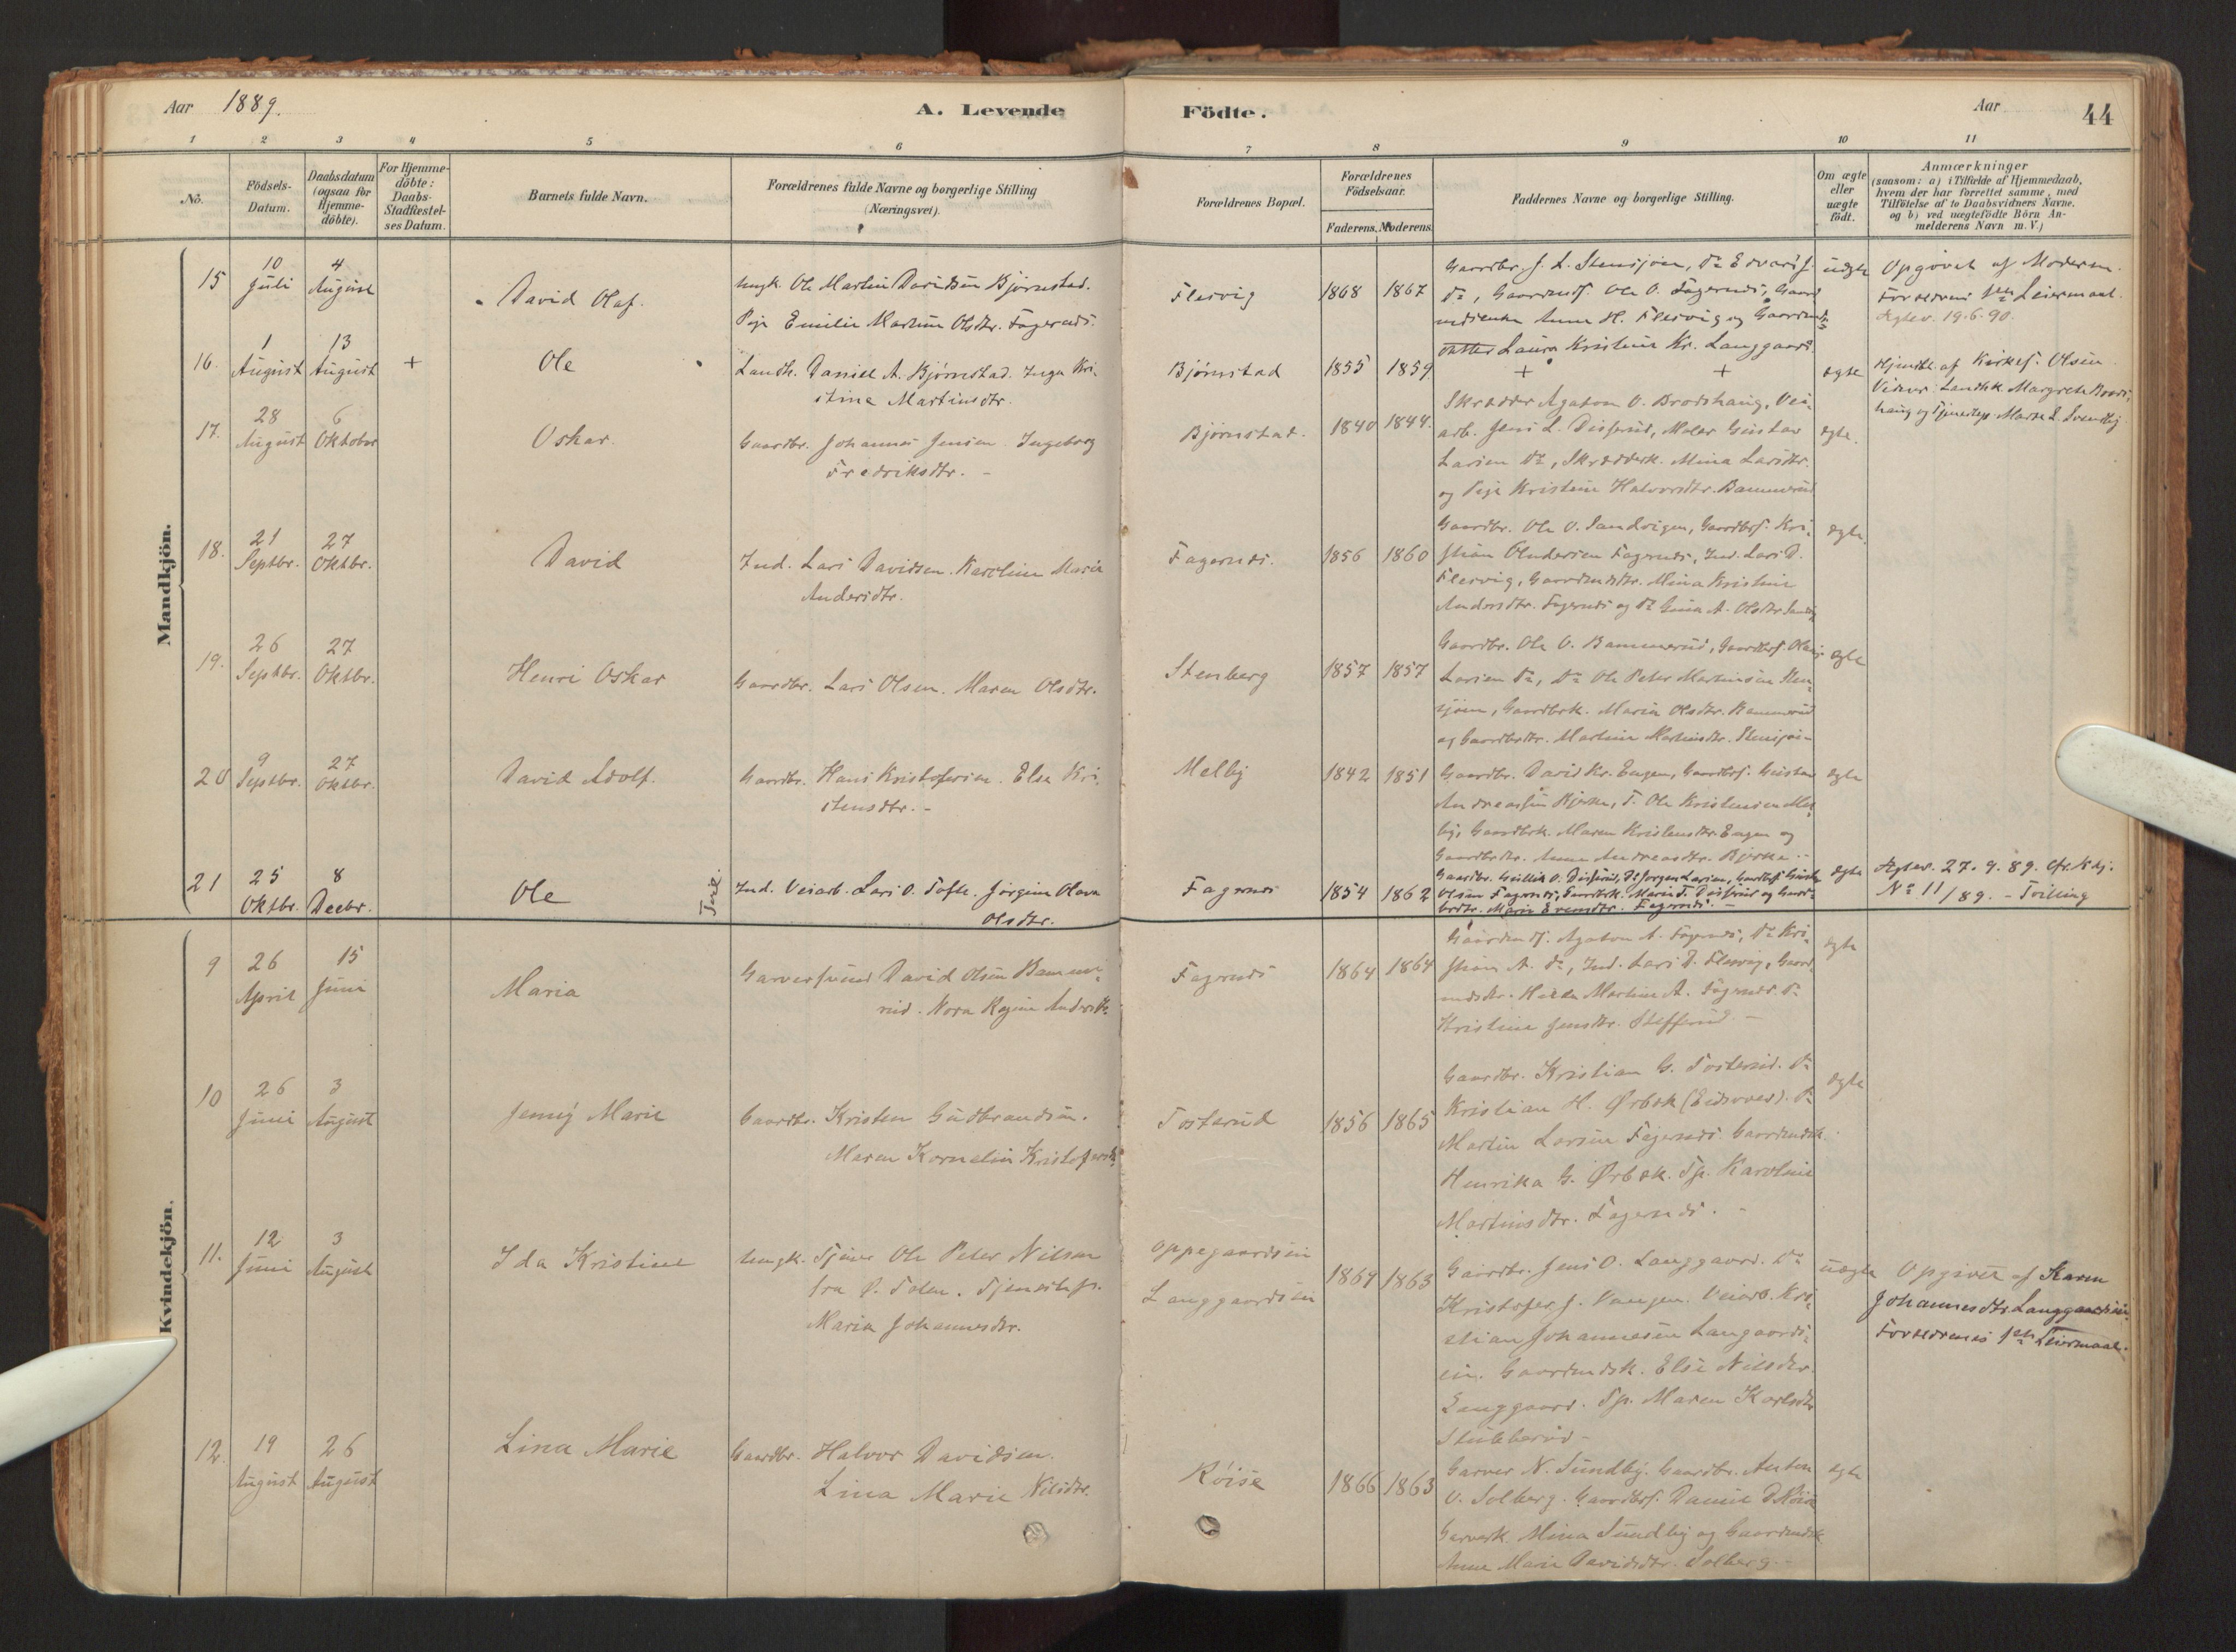 Aar 1889.
A. Levende Födte.
Aar 44
1 2 3 4 5 6 7 8 9 10 11
No.
Födsels-Datum.
Daabsdatum (ogsaa for Hjemme-döbte).
For Hjemme-döbte: Daabs-Stadfæstel-ses Datum.
Barnets fulde Navn.
Forældrenes fulde Navne og borgerlige Stilling
(Næringsvei).
Forældrenes Bopæl.
Forældrenes Födselsaar.
Faderens. Moderens.
Faddernes Navne og borgerlige Stilling.
Om ægte eller uægte födt.
Anmærkninger
(saasom: a) i Tilfælde af Hjemmedaab,
hvem der har forrettet samme, med
Tilföielse af to Daabsvidners Navne.
og b) ved uægtefödte Börn An-
melderens Navn m. V.)
Mandkjön.
15 10 Juli 4 August
David Olaf.
Ungk. Ole Martin Davidsen Bjørnstad.
Pige Emilie Martine Olsdtr. Fagernæs.
Flesvig 1868 1867
Gaardbr. J. L. Stensjøen, Do Edvard J.
Do, Gaardmdsk. Ole O. Fagernæs, Gaard
mdsenke Anne H. Flesvig og Gaardmds
datter Laura Kristine Kr. Langgaard.
uægte
Opgivet af Moderen.
Forældrens 1ste Leiermaal.
Ægtev. 19.6.90.
16. 1 August 13 August +
Ole
Landh. Daniel A. Bjørnstad. Inga Kri-
stine Martinsdtr.
Bjørnstad 1855 1859
+ +
ægte
Hjemdbt. af Kirkes. Olsen
Vidner: Landhk. Margrethe Brods-
haug og Tjenestep. Marthe L. Svendby
17. 28 August 6 Oktober
Oskar.
Gaardbr. Johannes Jensen. Ingeborg
Fredriksdtr. -
Bjørnstad. 1840 1844.
Skrædder Agaton O. Brodshaug, Vei-
arb. Jens L. Disserud, Maler Gustav
Larsen Do, Skrædderk. Mina Larsdtr.
og Pige Kristine Halvorsdtr. Bammerud
ægte.
18. 21 Septbr. 27 Oktbr.
David
Ind. Lars Davidsen. Karoline Marie
Andersdtr.
Fagernæs. 1856 1860
Gaardbr. Ole O. Sandvigen, Gaardbrs. Kri-
stian Andersen Fagernæs, Ind. Lars D.
Flesvig, Gaardmdsdtr. Mina Kristine
Andersdtr. Fagernæs og Do Gina A. Olsdtr.
ægte.
19. 26 Septbr. 27 Oktbr.
Henri Oskar
Gaardbr. Lars Olsen. Maren Olsdtr.
Stenberg 1857 1857
Gaardbr. Ole O. Bammerud, Gaardbrs. Olaus
Larsen Do, Do Ole Peter Martinsen Sten-
sjøen, Gaardbrk. Maria Olsdtr. Bammerud
og Gaardbrdtr. Martine Martinsdtr. Stensjøen
ægte
20 9 Septbr. 27 Oktbr.
David Adolf.
Gaardbr. Hans Kristofersen. Else Kri-
stensdtr. -
Melby 1842 1851
Gaardbr. David Kr. Engen, Gaardbrs. Gustav
Andreassen Bjerke, T. Ole Kristensen Mel-
by, Gaardbrk. Maren Kristensdtr. Engen og
Gaardbrdtr. Anne Andreasdtr. Bjerke -
ægte
21 25 Oktbr. 8 Decbr.
Ole
Tvil.
Ind. Veiarb. Lars O. Toften. Jørgine Olava
Olsdtr.
Fagernæs 1854 1862
Gaardbr. Gullik O. Disserud, Do Jørgen Larsen, Gaardbrs. Gustav
Olsen Fagernæs, Gaardbrk. Marie T. Disserud og Gaard-
brdtr. Marie Evensdtr. Fagernæs. -
ægte
Ægtev. 27.9.89. cfr. Kvkj.
No 11/89. - Tvilling
Kvindekjön.
9 26 April 15 Juni
Maria
Garversvend David Olsen Bamme-
rud. Nora Regine Andersdtr.
Fagernæs 1864 1864
Gaardmds. Agaton A. Fagernæs, Do Kri-
stian A. Do, Ind. Lars D. Flesvig, Gaard-
mdsdtr. Helle Martine A. Fagernæs. Do
Kristine Jensdtr. Stefferud. -
ægte
10 26 Juni 3 August
Jenny Marie
Gaardbr. Kristen Gudbrandsen.
Maren Kornelia Kristofersdtr.
Tosterud 1856 1865
Gaardbr. Kristian G. Tosterud. Do
Kristian H. Ørbæk (Eidsvold). Do
Martin Larsen Fagernæs. Gaardmdsk.
Henrika G. Ørbæk. Tp. Karoline
Martinsdtr. Fagernæs. -
ægte
11. 12 Juni 3 August
Ida Kristine
Ungk. Tjener Ole Peter Nilsen
fra Ø. Toten. Tjenestep.
Maria Johannesdtr.
Oppegaardsein
Langgaardsein
1869 1863
Gaardbr. Jens O. Langgaard. Do
Kristofer J. Vangen. Veiarb. Kri-
stian Johannesen Langaards-
ein. Gaardmdsk. Else Nilsdtr.
Langgaard. Tp. Maren Karlsdtr.
Stubberud -
uægte
Opgivet af Karen
Johannesdtr. Langgaardsein.
Forældrenes 1ste Leiermaal.
12. 19 August 26 August
Lina Marie
Gaardbr. Halvor Davidsen.
Lina Marie Nilsdtr.
Røise 1866 1863
Garver N. Sundby. Gaardbr. Anton
O. Solberg. Gaardbrs. Daniel D. Røise
Garverk. Mina Sundby og Gaardmdsk.
Anne Marie Davidsdtr. Solberg. -
ægte